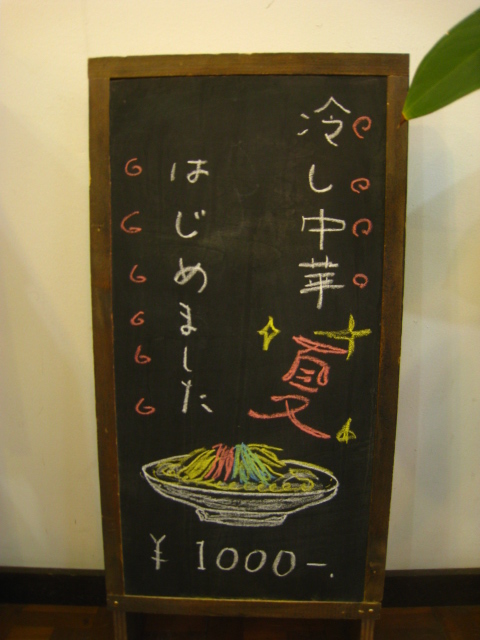 冷し中華
夏
はじめました
¥1000-.